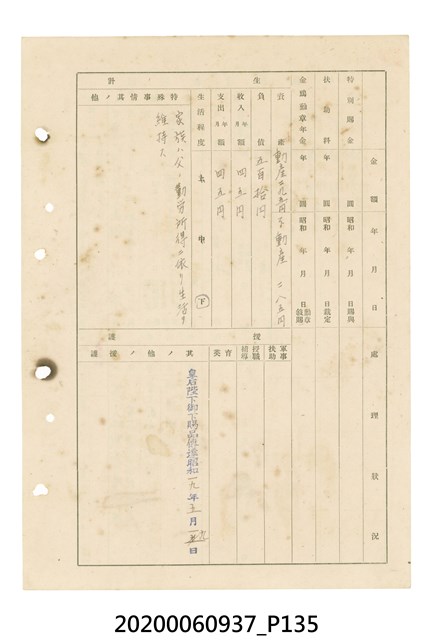 金額 年 月 日
處理狀況
特別賜金
圓 昭和 年 月 日賜與
扶助料
年 圓 昭和 年 月 日裁定
金鵄勳章年金
年 圓 昭和 年 月 日
生 計
資產 動產 不動產 二八五円
負債 五百拾円
收入年月額 四五円
支出年月額 四五円
生活程度 上 中 下
特殊事情其ノ他
家族ハ父ノ勤労所得ニ依リ生活ヲ
維持ス
援 護
軍事扶助
授職輔導
育英
其ノ他ノ援護
皇后陛下御下賜品傳達昭和一九年五月 日
20200060937_P135